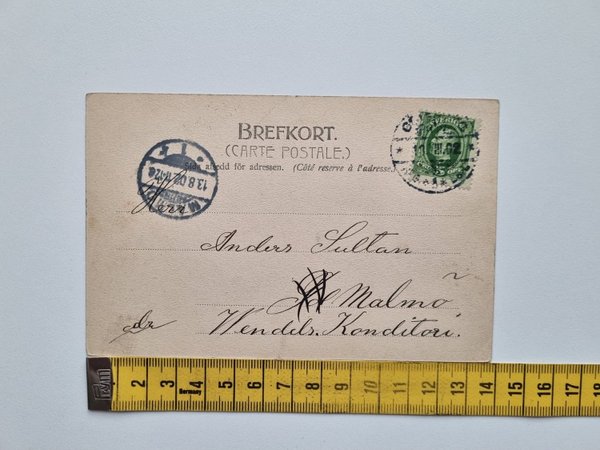 BREFKORT.
(CARTE POSTALE.)
Sida afsedd för adressen. (Côté reserve à l'adresse.)
SVERIGE
13.8.02
Herr
Anders Sultan
Malmö
Wendels. Konditori.
2 3 4 5 6 7 8 9 10 11 12 13 14 15 16 17
Germany